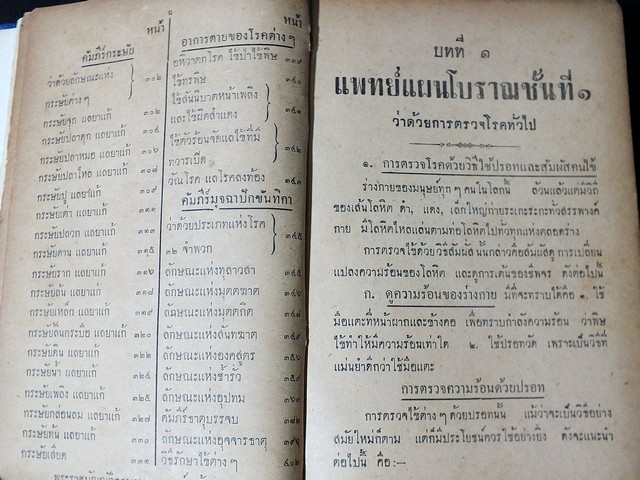 หน้า
คัมภีร์กระษัย
ว่าด้วยลักษณะแห่ง
กระษัยต่างๆ ๓๐๒
กระษัยจุก แลยาแก้ ๓๐๒
กระษัยปลาดุก แลยาแก้ ๓๐๔
กระษัยปลาหมอ แลยาแก้ ๓๐๖
กระษัยปลาไหล แลยาแก้ ๓๐๗
กระษัยปู แลยาแก้ ๓๐๘
กระษัยเต่า แลยาแก้ ๓๐๙
กระษัยปลวก แลยาแก้ ๓๑๑
กระษัยดาน แลยาแก้ ๓๑๕
กระษัยราก แลยาแก้ ๓๑๖
กระษัยล้น แลยาแก้ ๓๑๘
กระษัยเหล็ก แลยาแก้ ๓๑๙
กระษัยลิ้นกระบือ แลยาแก้ ๓๒๐
กระษัยดิน แลยาแก้ ๓๒๒
กระษัยน้ำ แลยาแก้ ๓๒๔
กระษัยเพลิง แลยาแก้ ๓๒๕
กระษัยกล่อนลม แลยาแก้ ๓๒๗
กระษัยท้น แลยาแก้ ๓๓๐
กระษัยเสียด ๓๓๑
หน้า
อาการตายของโรคต่างๆ
อหิวาตกโรค ไข้ป่าไข้พิษ ๓๓๙
ไข้ทรพิษ ๓๔๐
ไข้สันนิบาตหน้าเพลิง
และไข้ผิดสำแดง ๓๔๑
ไข้ตัวร้อนจัดแลไข้ที่มี
ทวารเปิด ๓๔๒
วัณโรค แลโรคลงท้อง ๓๔๓
คัมภีร์มุจฉาปักขันทิกา
ว่าด้วยประเภทแห่งโรค
๓๒ จำพวก ๓๔๕
ลักษณะแห่งทุลาวสา
ลักษณะแห่งมุตตฆาต
ลักษณะแห่งมุตตกิต
ลักษณะแห่งสันทฆาต
ลักษณะแห่งองคสูตร
ลักษณะแห่งช้ำรั่ว
ลักษณะแห่งอุปทม
คัมภีร์ธาตุบรรจบ
ลักษณะแห่งอุจจารธาตุ
วิธีรักษาไข้ต่างๆ
บทที่ ๑
แพทย์แผนโบราณชั้นที่ ๑
ว่าด้วยการตรวจโรคทั่วไป
๑. การตรวจโรคด้วยวิธีใช้ปรอทและสัมผัสคนไข้
ร่างกายของมนุษย์ทุกๆ คนในโลกนี้ ล้วนแล้วแต่มีวิถี
ของเส้นโลหิต ดำ, แดง, เล็กใหญ่ก่ายระเกะระกะทั่วสรรพางค์
กาย มีโลหิตไหลแล่นตามท่อโลหิตไปทั่วทุกแห่งตลอดร่าง
การตรวจไข้ด้วยวิธีสัมผัส นั้นกล่าวคือสัมผัสดู การเปลี่ยน
แปลงความร้อนของโลหิต และดูการเต้นของชีพจร ดังต่อไปนี้
ก. ดูความร้อนของร่างกาย มีที่จะทราบได้คือ ๑. ใช้
มือแตะที่หน้าผากและข้างคอ เพื่อทราบกำลังความร้อน ว่าพิษ
ไข้ทำให้มีความร้อนเท่าใด ๒. ใช้ปรอทวัด เพราะเป็นวิธีที่
แม่นยำดีกว่าใช้มือแตะ
การตรวจความร้อนด้วยปรอท
การตรวจไข้ต่างๆ ด้วยปรอทนั้น แม้ว่าจะเป็นวิธีอย่าง
สมัยใหม่ก็ตาม แต่ก็มีประโยชน์ควรใช้อย่างยิ่ง ดังจะแนะนำ
ต่อไปนี้ คือ:—